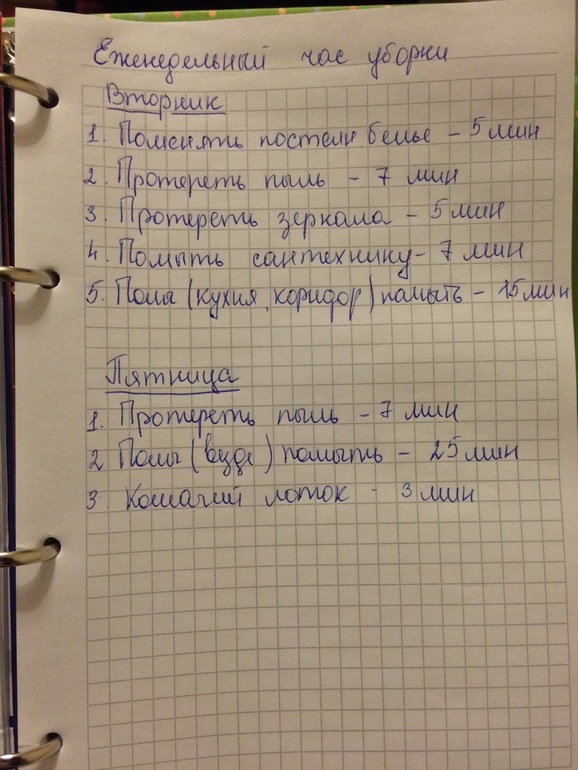 Еженедельный час уборки
Вторник
1. Поменять постелн белье - 5 мин
2. Протереть пыль - 7 мин
3. Протереть зеркала - 5 мин
4. Помыть сантехнику - 7 мин
5. Полы (кухня, коридор) помыть - 15 мин
Пятница
1. Протереть пыль - 7 мин
2 Полы (везде) помыть - 25 мин
3 Кошачий лоток - 3 мин